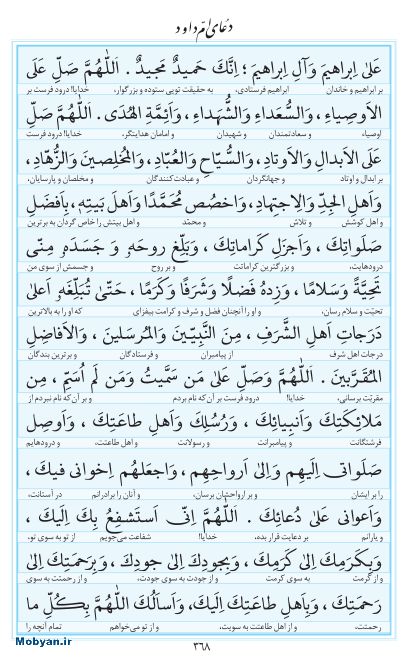 دعای امّ داود
عَلىٰ اِبراهیمَ وَآلِ اِبراهیمَ؛ اِنَّكَ حَمیدٌ مَجیدٌ. اَللّٰهُمَّ صَلِّ عَلَى
بر ابراهیم و خاندان ابراهیم فرستادی، به حقیقت تویی ستوده و بزرگوار، خدایا! درود فرست بر
الاَوصِیاءِ، وَالسُّعَداءِ وَالشُّهَداءِ، وَاَئِمَّةِ الهُدَى. اَللّٰهُمَّ صَلِّ
اوصیاء، و سعادتمندان و شهیدان و امامان هدایتگر، خدایا! درود فرست
عَلَى الاَبدالِ وَالاَوتادِ، وَالسُّیّاحِ وَالعُبّادِ، وَالمُخلِصینَ وَالزُّهّادِ،
بر ابدال و اوتاد و جهانگردان و عبادت‌کنندگان و مخلصان و پارسایان،
وَاَهلِ الجِدِّ وَالاِجتِهادِ، وَاخصُص مُحَمَّدًا وَاَهلَ بَیتِهِ، بِاَفضَلِ
و اهل کوشش و تلاش و محمّد و اهل بیتش را خاص گردان به برترین
صَلَواتِكَ، وَاَجزَلِ كَراماتِكَ، وَبَلِّغ روحَهُ وَ جَسَدَهُ مِنّی
درودهایت، و بزرگترین کراماتت و بر روح و جسمش از سوی من
تَحِیَّةً وَسَلامًا، وَزِدهُ فَضلًا وَشَرَفًا وَكَرَمًا، حَتّىٰ تُبَلِّغَهُ اَعلىٰ
تحیّت و سلام رسان، و او را آنچنان فضل و شرف و کرامت بیفزای که او را به بالاترین
دَرَجاتِ اَهلِ الشَّرَفِ، مِنَ النَّبِیّینَ وَالمُرسَلینَ، وَالاَفاضِلِ
درجات اهل شرف از پیامبران و فرستادگان و برترین بندگان
المُقَرَّبینَ. اَللّٰهُمَّ وَصَلِّ عَلىٰ مَن سَمَّیتُ وَمَن لَم اُسَمِّ، مِن
مقرّبت برسانی، خدایا! درود فرست بر آن‌که نام بردم و بر آن‌که نام نبردم از
مَلائِكَتِكَ وَاَنبِیائِكَ، وَرُسُلِكَ وَاَهلِ طاعَتِكَ، وَاَوصِل
فرشتگانت و پیامبرانت و رسولانت و اهل طاعتت، و درودهایم
صَلَواتی اِلَیهِم وَاِلىٰ اَرواحِهِم، وَاجعَلهُم اِخوانی فیكَ،
را بر ایشان و بر ارواحشان برسان، و آنان را برادرانم در آستانت،
وَاَعوانی عَلىٰ دُعائِكَ. اَللّٰهُمَّ اِنّی اَستَشفِعُ بِكَ اِلَیكَ،
و یارانم بر دعایت قرار بده، خدایا! شفاعت می‌جویم از تو به سوی تو،
وَبِكَرَمِكَ اِلىٰ كَرَمِكَ، وَبِجودِكَ اِلىٰ جودِكَ، وَبِرَحمَتِكَ اِلىٰ
و از کرمت به سوی کرمت و از جودت به سوی جودت، و از رحمتت به سوی
رَحمَتِكَ، وَبِاَهلِ طاعَتِكَ اِلَیكَ، وَاَسأَلُكَ اللّٰهُمَّ بِكُلِّ ما
رحمتت، و از اهل طاعتت به سویت، و از تو می‌خواهم تمام آنچه را
۳۶۸
Mobyan.ir